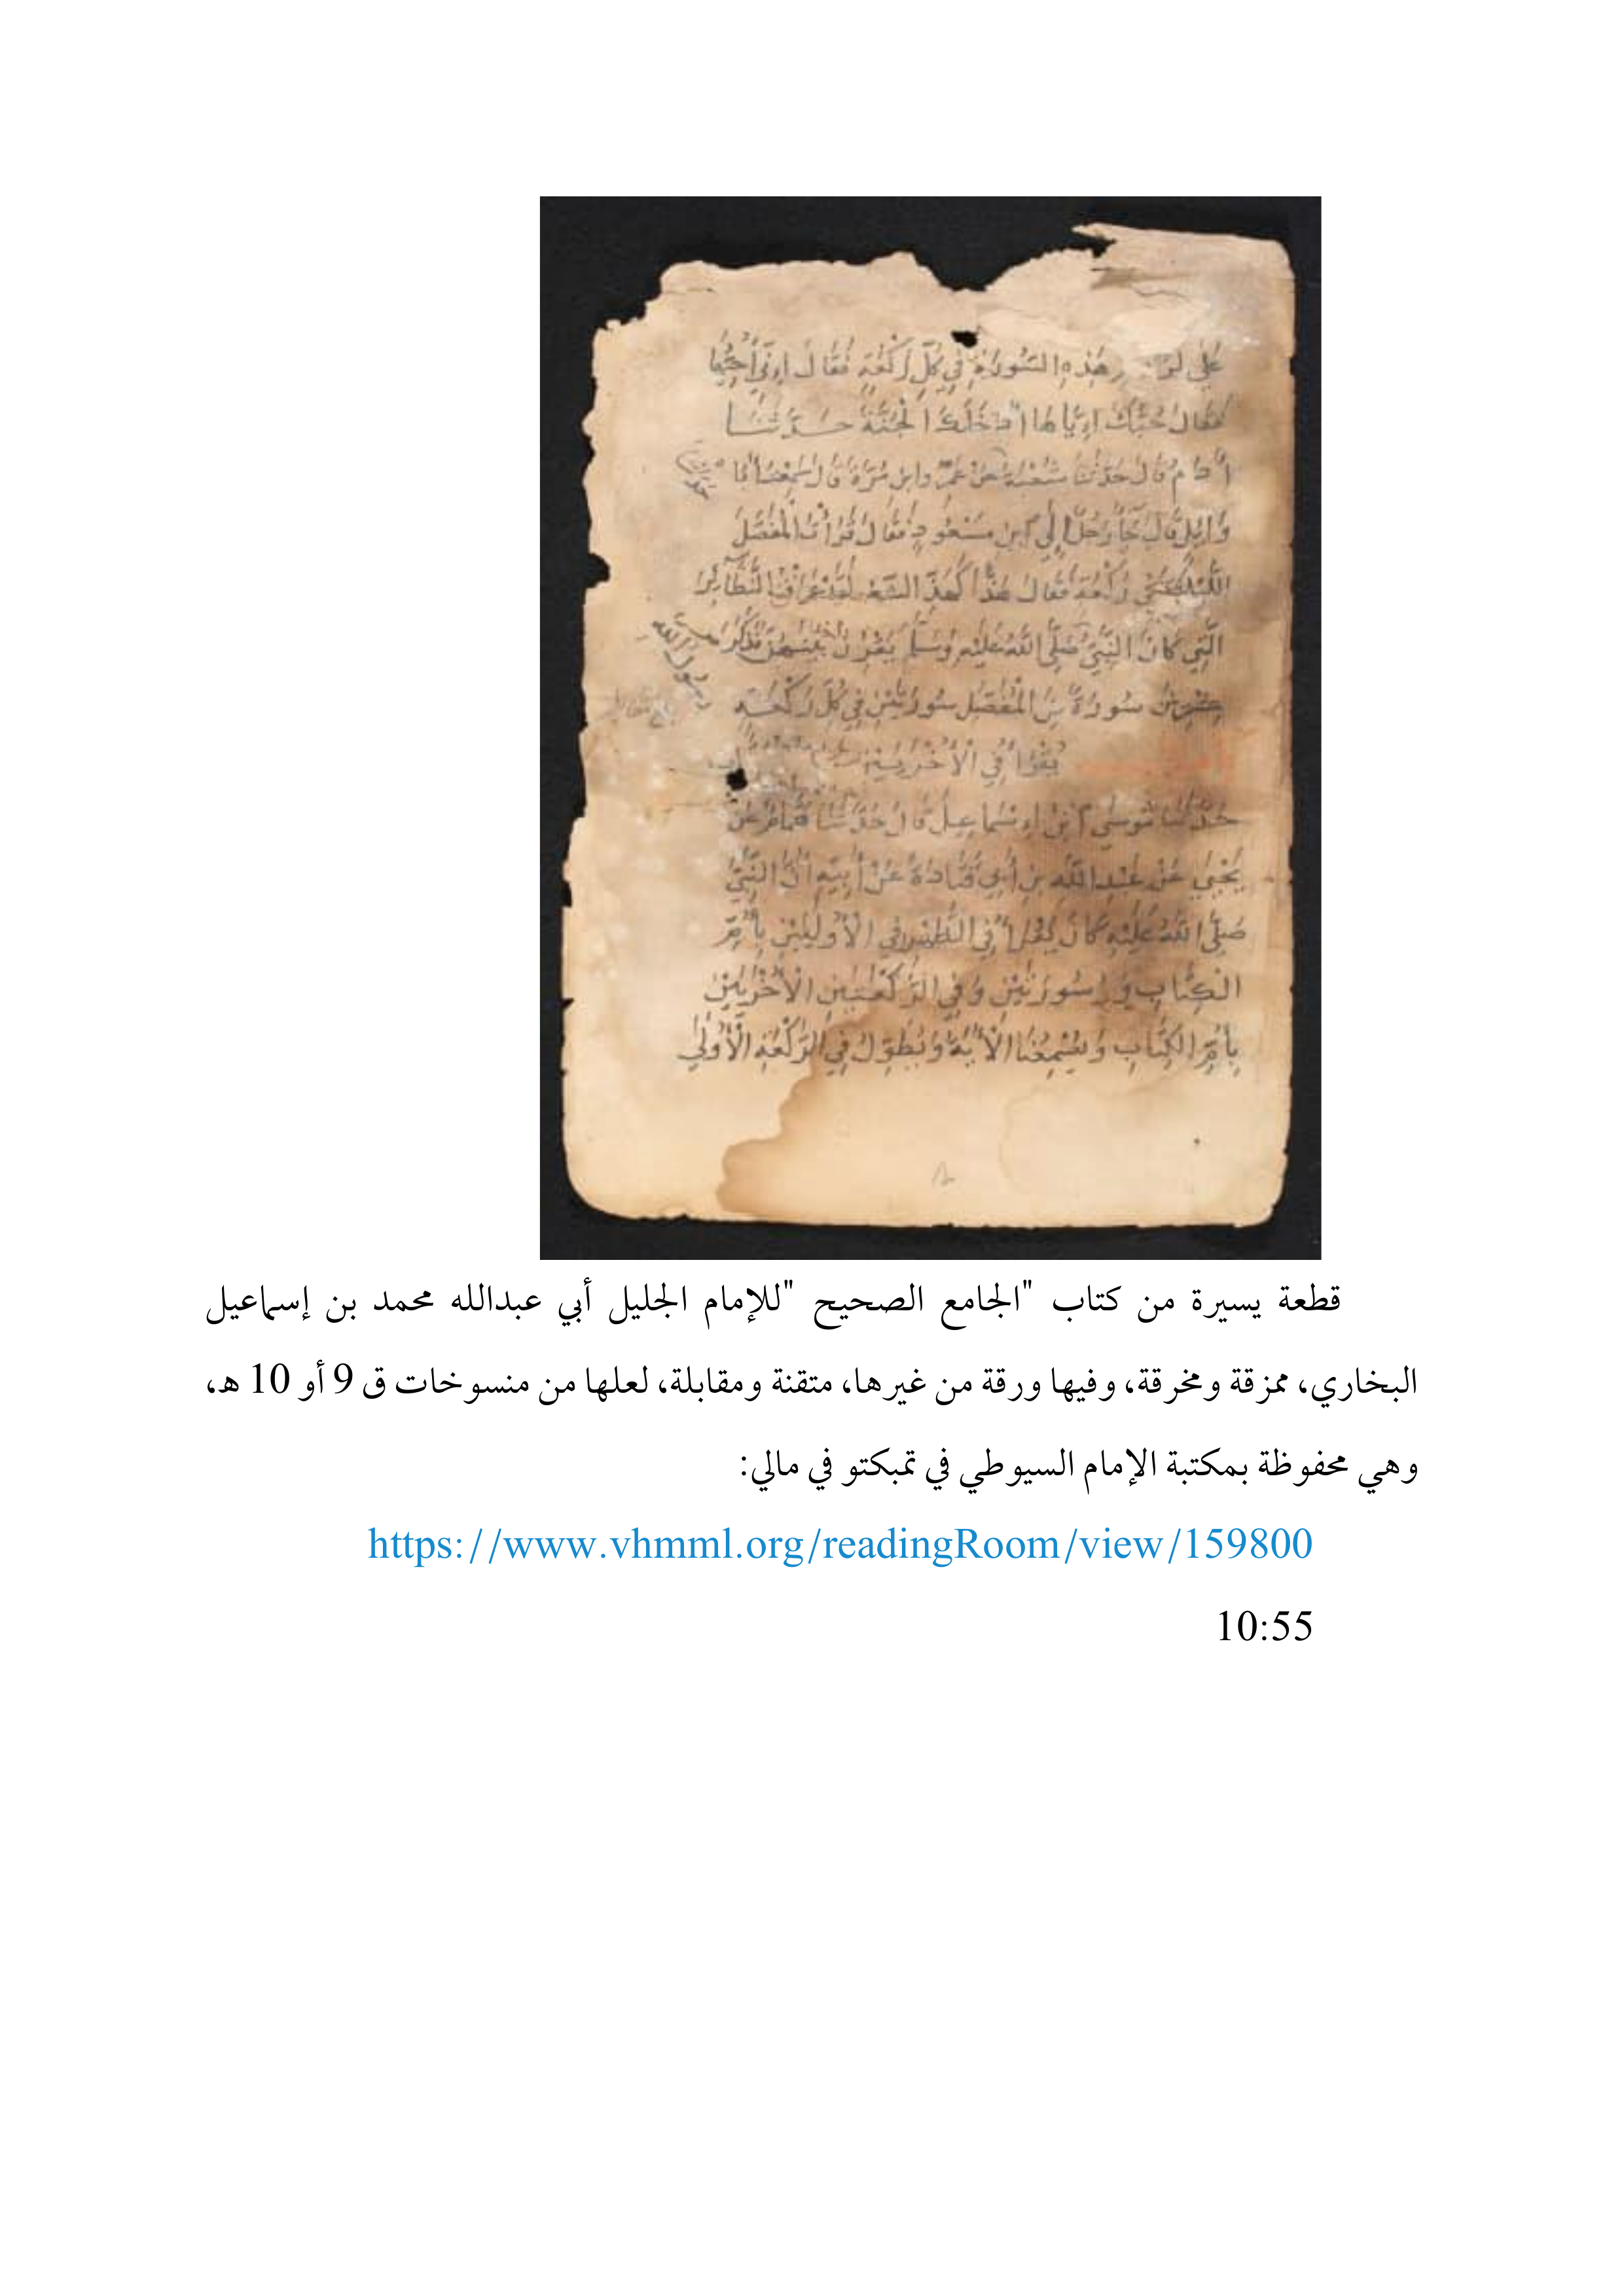 على لزوم هذه السورة في كل ركعة فقال إني أحبها
فقال حبك إياها أدخلك الجنة حدثنا
آدم قال حدثنا شعبة عن عمرو ابن مرة قال سمعت أبا
وايل قال جاء رجل إلى ابن مسعود فقال قرأت المفصل
الليلة في ركعة فقال هذا كهذ الشعر لقد عرفت النظائر
التي كان النبي صلى الله عليه وسلم يقرن بينهن فذكر
عشرين سورة من المفصل سورتين في كل ركعة
يقرأ في الأخريين
حدثنا موسى ابن إسماعيل قال حدثنا همام عن
يحيى عن عبد الله بن أبي قتادة عن أبيه أن النبي
صلى الله عليه كان يقرأ في الظهر في الأوليين بأم
الكتاب وسورتين وفي الركعتين الأخريين
بأم الكتاب ويسمعنا الآية ويطول في الركعة الأولى
قطعة يسيرة من كتاب "الجامع الصحيح "للإمام الجليل أبي عبدالله محمد بن إسماعيل
البخاري، ممزقة ومخرقة، وفيها ورقة من غيرها، متقنة ومقابلة، لعلها من منسوخات ق 9 أو 10 هـ،
وهي محفوظة بمكتبة الإمام السيوطي في تمبكتو في مالي:
https://www.vhmml.org/readingRoom/view/159800
10:55